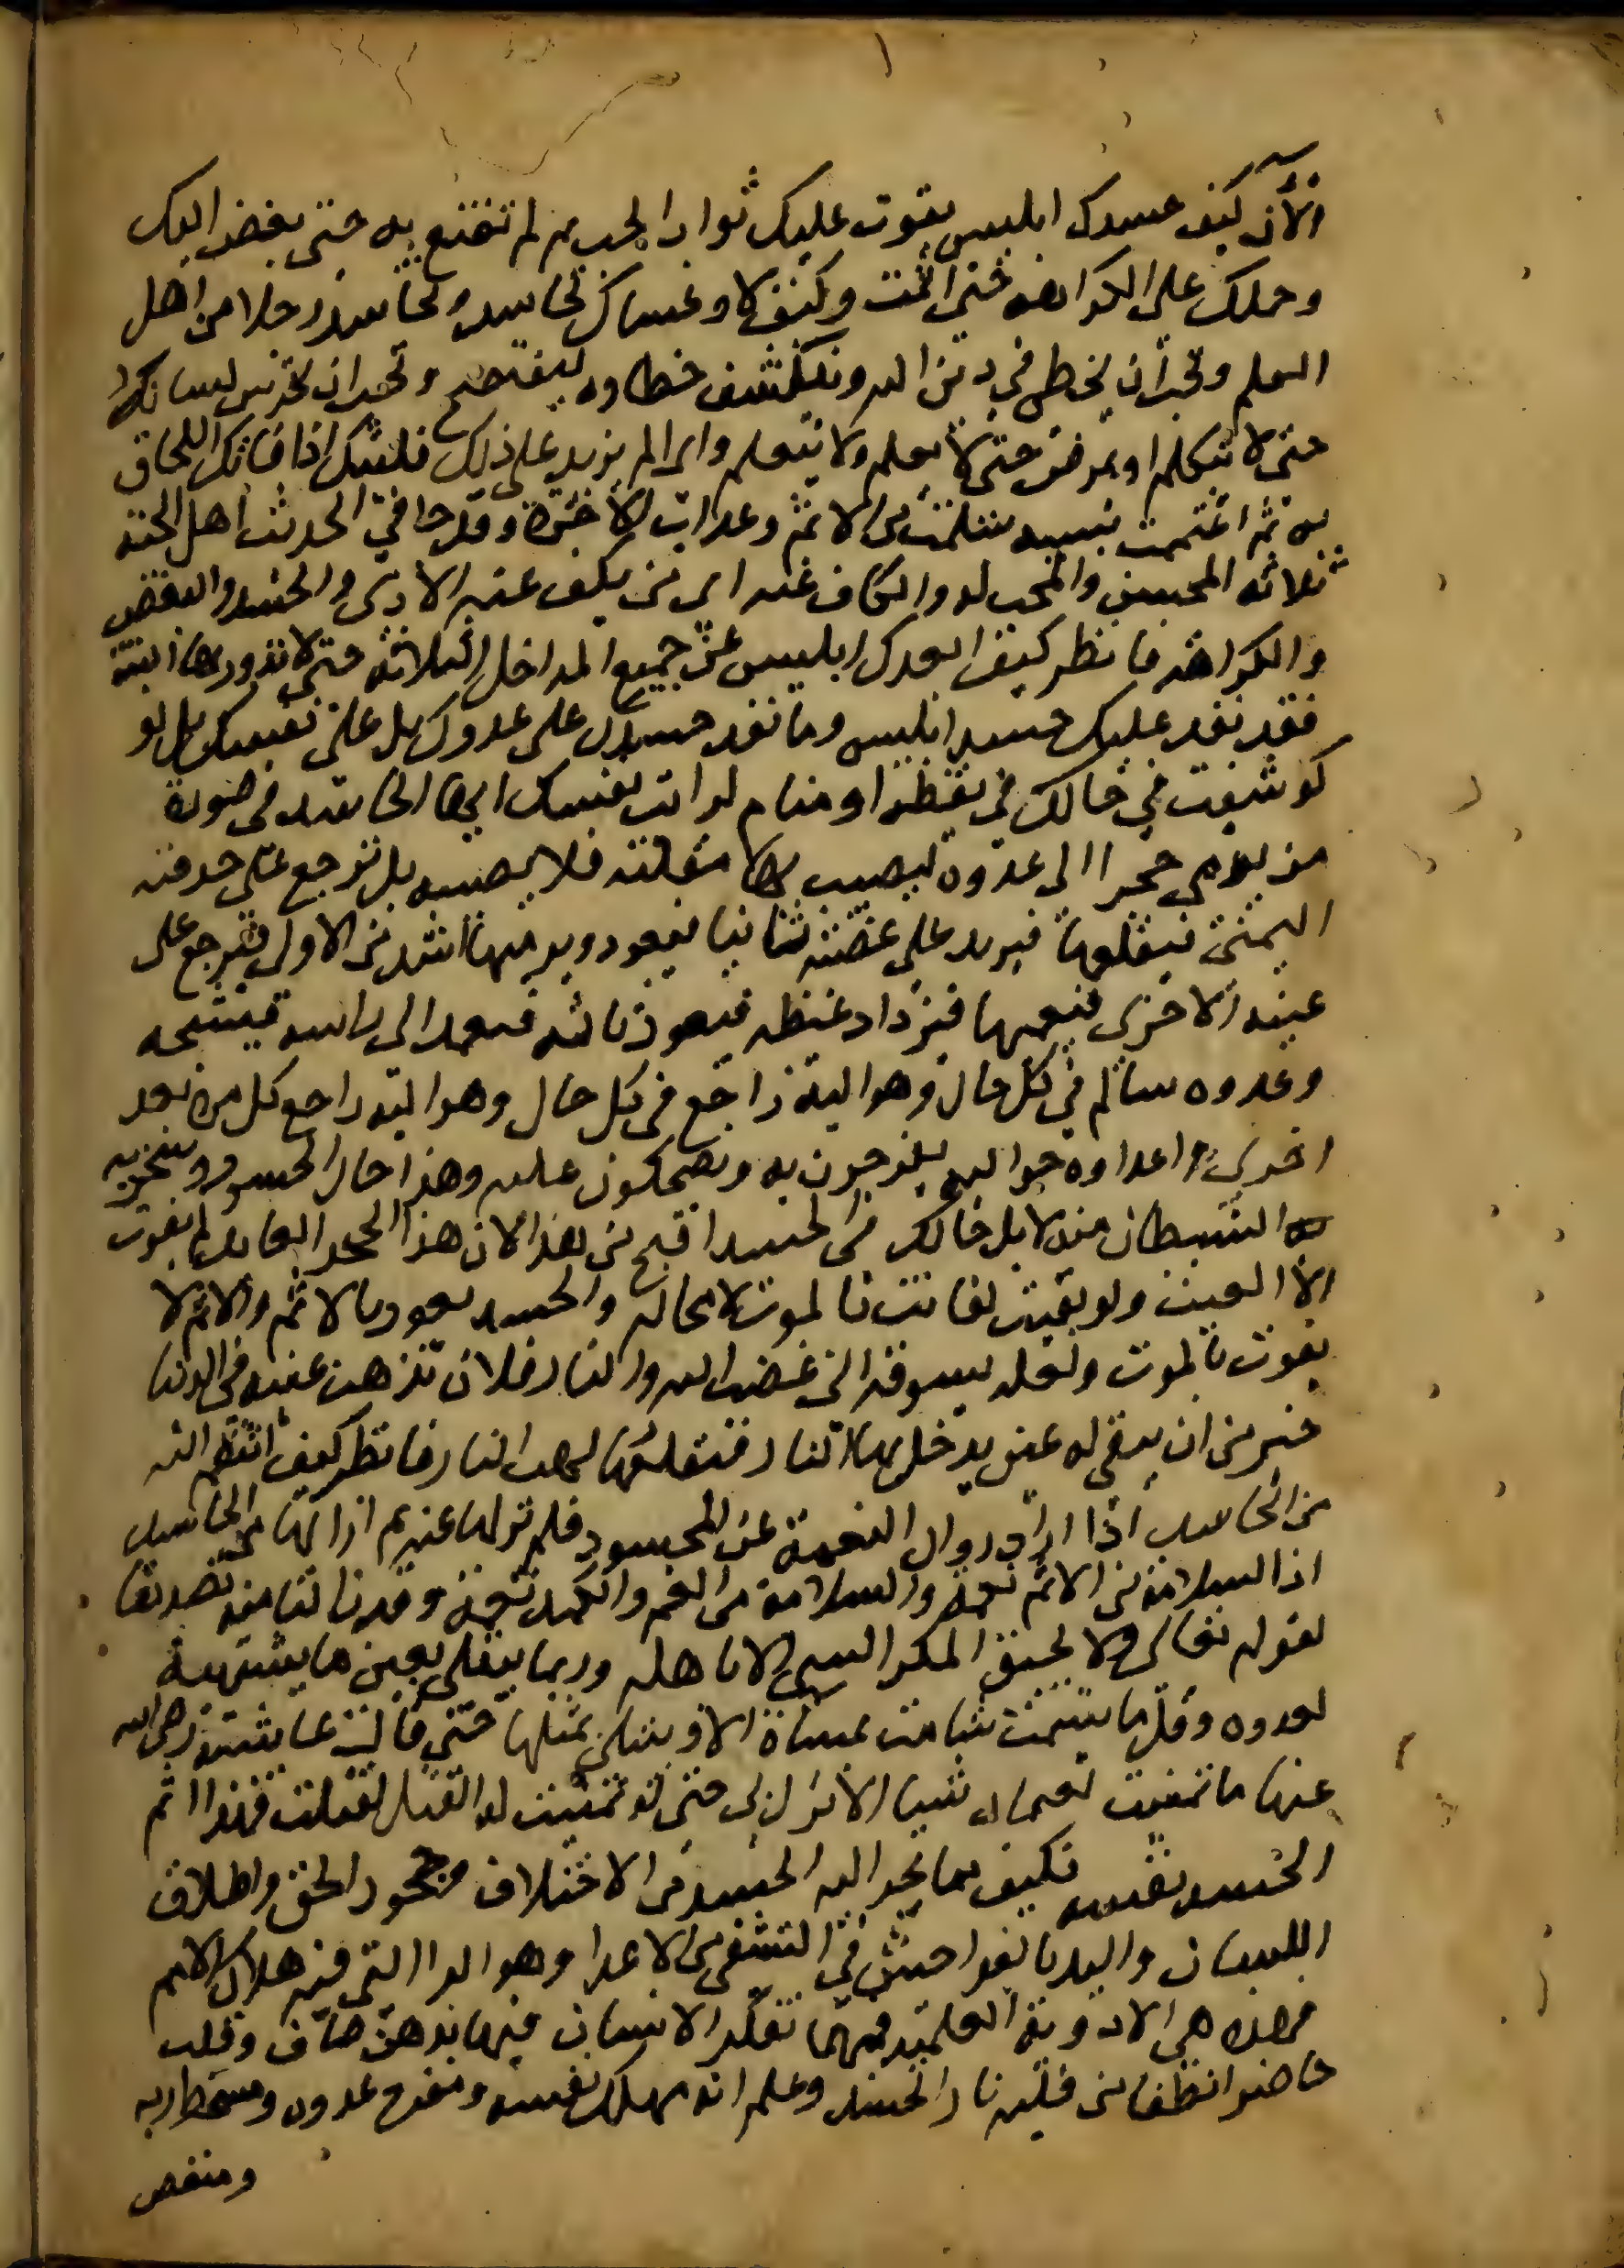 الآن كيف حسدك ابليس بفوت عليك ثواب الحب ثم لم تقنع به حتى بغض اليك
وحملك على الكراهه حتى اثمت وكيف لا وعساك تحاسد وتحاسد رجلا من اهل
العلم وتحب ان يخطى في دين الله وينكشف خطاوه ليفتضح وتحب ان يخرس لسانه
حتى لا يتكلم او يمرض حتى لا يعلم ولا يتعلم واى اثم يزيد على ذلك فليتك اذا فاتك اللحاق
به ثم اغتممت بسببه سلمت من الاثم وعذاب الاخرة وقد جا في الحديث اهل الجنة
ثلاثه المحسن والمحب له والكاف عنه اى من يكف عنه الاذى والحسد والبغض
والكراهه فانظر كيف ابعدك ابليس عن جميع المداخل الثلاثه حتى لا تدور بها البته
فقد نفد عليك حسد ابليس وما نفد حسدك على عدوك بل على نفسك بل لو
كوشفت في حالك في يقظه او منام لرايت نفسك ايها الحاسد في صورة
من يرمي حجرا الى عدوه ليصيب بها مقلته فلا يصيبه بل ترجع على حدقته
اليمنى فيقلعها فيزيد على غضبه ثانيا فيعود ويرميها اشد من الاولى فترجع على
عينه الاخرى فيعميها فيزداد غيظه فيعود ثالثه فيعمد الى راسه فيشجه
وعدوه سالم في كل حال وهو اليه راجع في كل حال وهو اليه راجع كل مره بعد
اخرى واعداوه حواليه يفرحون به ويضحكون عليه وهذا حال الحسود وسخرية
الشيطان منه لا بل حالك في الحسد اقبح من هذا لان هذا الحجر العايد لم يفوت
الا العين ولو بقيت لفاتت بالموت لا محاله والحسد يعود بالاثم والاثم لا
يفوت بالموت ولعله يسوقه الى غضب الله والنار فلان تذهب عينه في الدنيا
خير من ان يبقى له عين يدخل بها النار فيقلعها لهب النار فانظر كيف انتقم الله
من الحاسد اذا اراد زوال النعمة عن المحسود فلم يزلها عنه ثم ازالها من الحاسد
اذ السلامه من الاثم نعمة والسلامة من الغم والكمد نعمة وقد زالتا منه تصديقا
لقوله تعالى ولا يحيق المكر السي الا باهله وربما يبتلى بعين ما يشتهيه
لعدوه وقل ما يشمت شامت بمساة الا ويبتلى بمثلها حتى قالت عايشه رضى الله
عنها ما تمنيت لعثمان شيا الا نزل بى حتى لو تمنيت له القتل لقتلت فهذا اثم
الحسد نفسه فكيف بما يجر اليه الحسد من الاختلاف وجحود الحق واطلاق
اللسان واليد بالفواحش في التشفى من الاعدا وهو الدا الذى فيه هلاك الامم
فهذه هى الادوية العلمية فمهما تفكر الانسان فيها بذهن صاف وقلب
حاضر انطفا من قلبه نار الحسد وعلم انه مهلك نفسه ومفرح عدوه ومسخط ربه
ومنغص